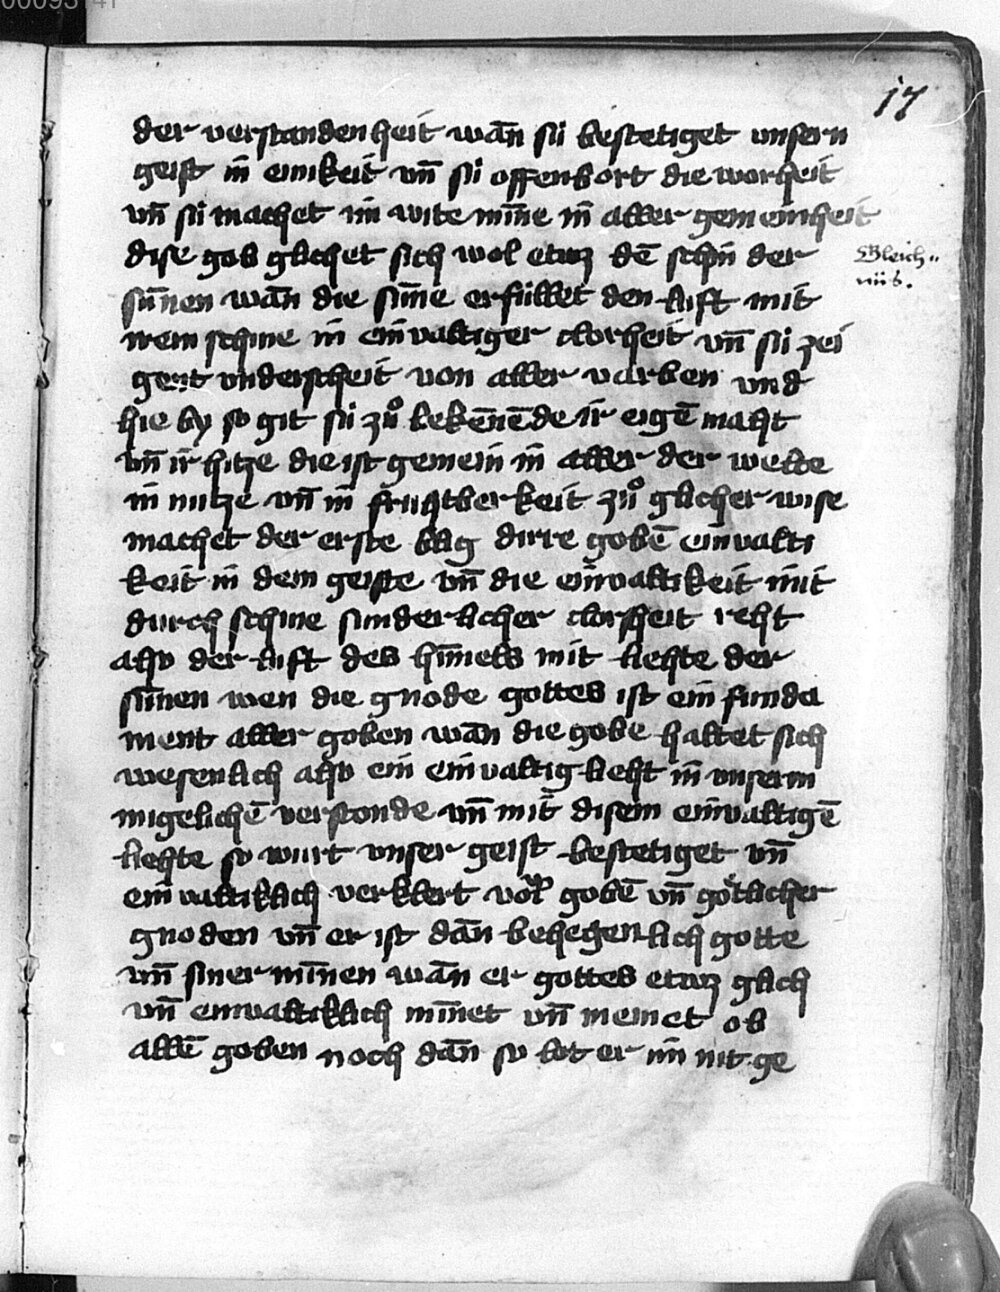 00093141
17
der verstandenheit wān sü bestetiget unsern
geist in einikeit un̄ sü offenbort die worheit
un̄ sü machet im wite min̄e in aller gemeinheit
dise gob glichet sich wol etwz dē schin der
Gleich„
nüs.
sun̄en wān die sun̄e erfüllet den luft mit
irem schine in einvaltiger clorheit un̄ sü zei
get underscheit von aller varben und
hie by so git sü zů bekēnēde ir eigē maht
un̄ ir hitze die ist gemein in aller der welte
in nutze un̄ in fruhtberkeit zů glicher wise
machet der erste blig dirre gobē einvalti
keit in dem geiste un̄ die einvaltikeit mit
durch schine sunderlicher clorheit reht
also der luft des him̄els mit liehte der
sun̄en wen die gnode gottes ist ein funda
ment aller goben wān die gobe haltet sich
wesenlich also ein einvaltig lieht in unserm
mügelichē verstonde un̄ mit disem einvaltigē
liehte so wurt unser geist bestetiget un̄
einvalteklich verklert vol gobē un̄ götlicher
gnoden un̄ er ist dān behegenlich gotte
un̄ siner min̄en wān er gottes etwz glich
un̄ einvalteklich min̄et un̄ meinet ob
allē goben noch dān so lot er im nit ge